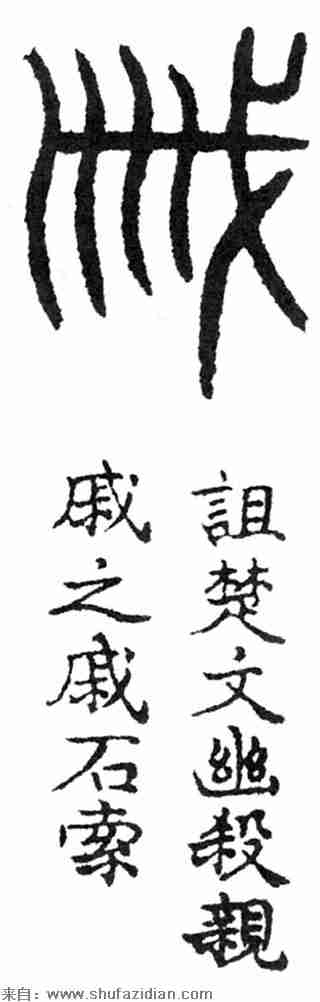 詛楚文幽殺親
戚之戚石索
来自：www.shufazidian.com